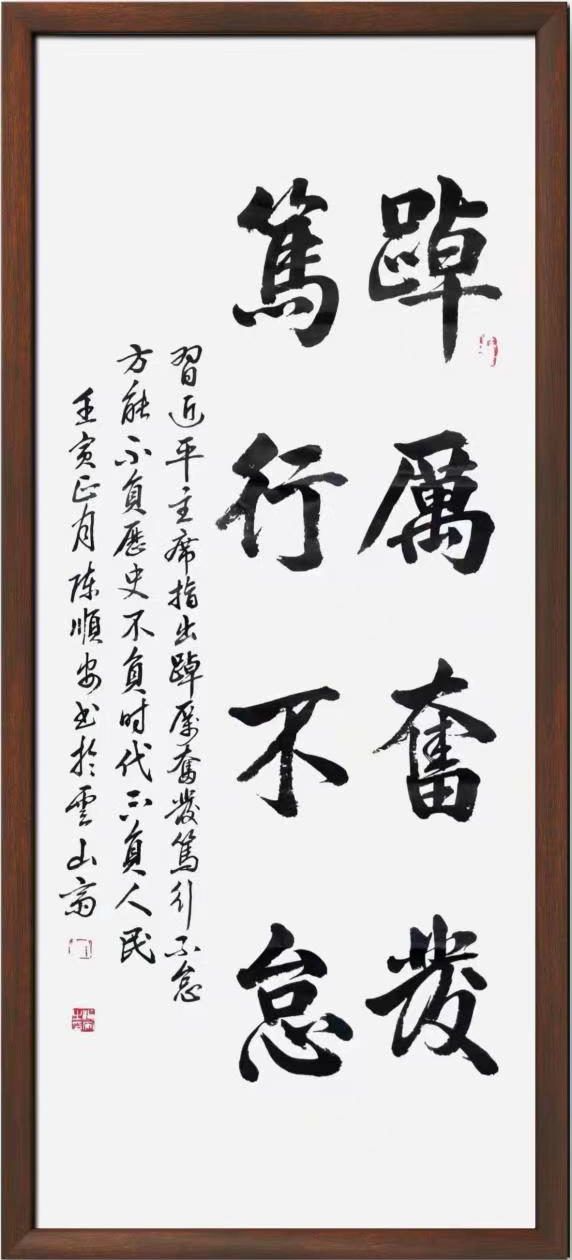 踔厲奮發
篤行不怠
習近平主席指出踔厲奮發篤行不怠
方能不負歷史不負时代不負人民
壬寅正月陈順安书於雲山斋